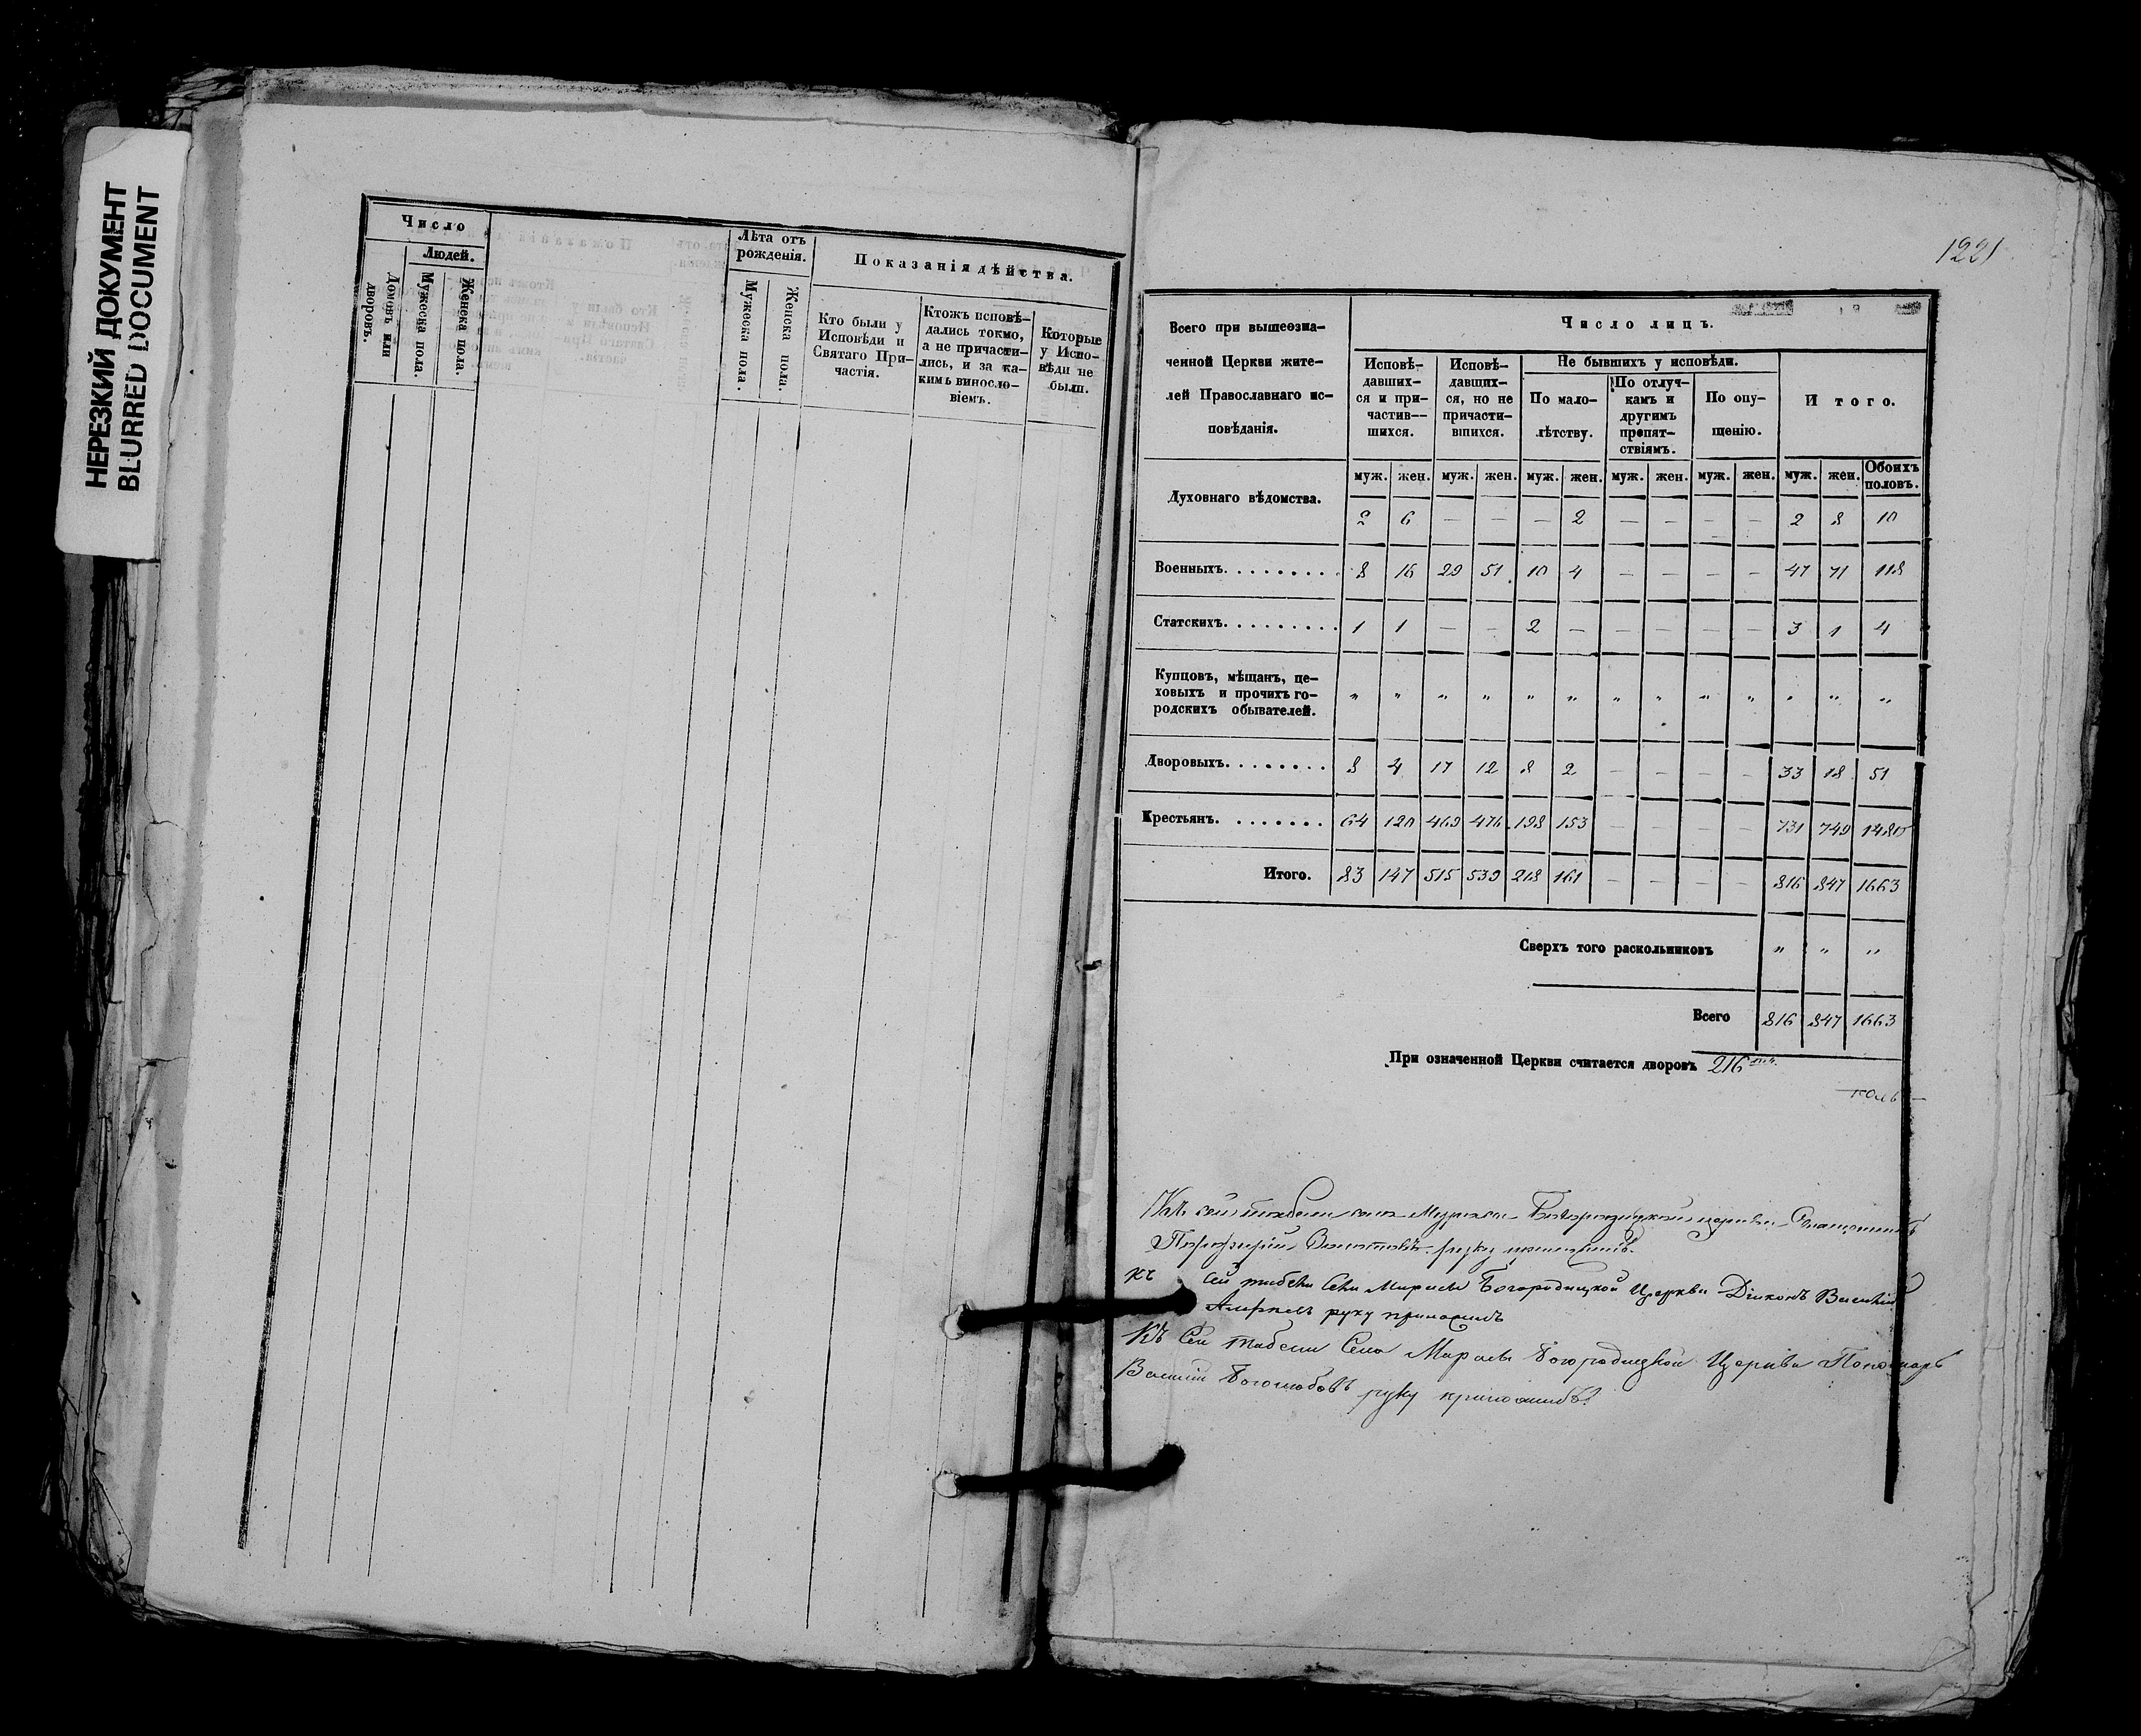 НЕРЕЗКИЙ ДОКУМЕНТ
BLURRED DOCUMENT
Число
Людей.
Домовъ или дворовъ.
Мужеска пола.
Женска пола.
Лѣта отъ рожденія.
Мужеска пола.
Женска пола.
Показанія дѣйства.
Кто были у Исповѣди и Святаго Причастія.
Ктожъ исповѣдались токмо, а не причастились, и за какимъ винословіемъ.
Которые у Исповѣди не были.
1221
Всего при вышеозначенной Церкви жителей Православнаго исповѣданія.
Число лицъ.
Исповѣдавшихся и причастившихся.
Исповѣдавшихся, но не причастившихся.
Не бывшихъ у исповѣди.
По малолѣтству.
По отлучкамъ и другимъ препятствіямъ.
По опущенію.
Итого.
муж. жен. муж. жен. муж. жен. муж. жен. муж. жен. муж. жен. Обоихъ половъ.
Духовнаго вѣдомства. 2 6 — — — 2 — — — — 2 8 10
Военныхъ. . . . . . . . . 8 16 29 51 10 4 — — — — 47 71 118
Статскихъ. . . . . . . . . 1 1 — — 2 — — — — — 3 1 4
Купцовъ, мѣщанъ, цеховыхъ и прочихъ городскихъ обывателей. „ „ „ „ „ „ „ „ „ „ „ „ „
Дворовыхъ. . . . . . . . 8 4 17 12 8 2 — — — — 33 18 51
Крестьянъ. . . . . . . . 64 120 469 476 198 153 — — — — 731 749 1480
Итого. 83 147 515 539 218 161 — — — — 816 847 1663
Сверхъ того раскольниковъ „ „ „
Всего 816 847 1663
При означенной Церкви считается дворовъ 216
Къ сей табели села Богородицкой церкви Священникъ
Порфирій руку приложилъ.
Къ сей табели села Мараевки Богородицкой Церкви Діаконъ Василій
руку приложилъ
Къ сей табели Села Богородицкой Церкви Пономарь
Василій Боголюбовъ руку приложилъ.